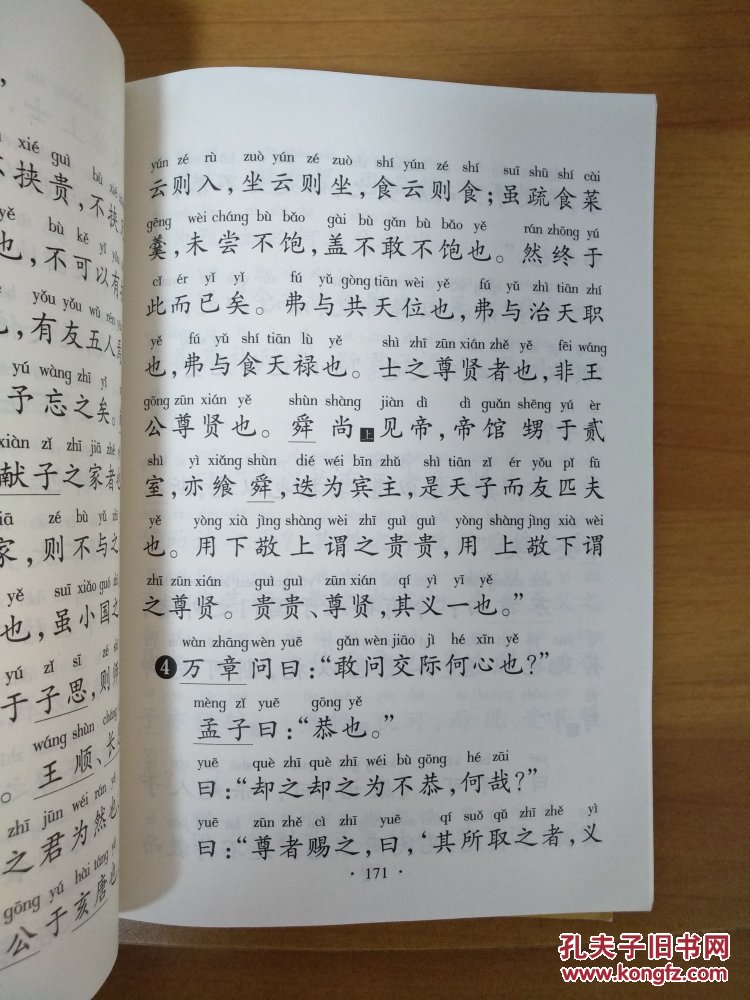 yún zé rù zuò yún zé zuò shí yún zé shí suī shū shí cài
云则入，坐云则坐，食云则食；虽疏食菜
gēng wèi cháng bù bǎo gài bù gǎn bù bǎo yě rán zhōng yú
羹，未尝不饱，盖不敢不饱也。然终于
cǐ ér yǐ yǐ fú yǔ gòng tiān wèi yě fú yǔ zhì tiān zhí
此而已矣。弗与共天位也，弗与治天职
yě fú yǔ shí tiān lù yě shì zhī zūn xián zhě yě fēi wáng
也，弗与食天禄也。士之尊贤者也，非王
gōng zūn xián yě shùn shàng jiàn dì dì guǎn shēng yú èr
公尊贤也。舜尚上见帝，帝馆甥于贰
shì yì xiǎng shùn dié wéi bīn zhǔ shì tiān zǐ ér yǒu pǐ fū
室，亦飨舜，迭为宾主，是天子而友匹夫
yě yòng xià jìng shàng wèi zhī guì guì yòng shàng jìng xià wèi
也。用下敬上谓之贵贵，用上敬下谓
zhī zūn xián guì guì zūn xián qí yì yī yě
之尊贤。贵贵、尊贤，其义一也。”
wàn zhāng wèn yuē gǎn wèn jiāo jì hé xīn yě
4 万章问曰：“敢问交际何心也？”
mèng zǐ yuē gōng yě
孟子曰：“恭也。”
yuē què zhī què zhī wéi bù gōng hé zāi
曰：“却之却之为不恭，何哉？”
yuē zūn zhě cì zhī yuē qí suǒ qǔ zhī zhě yì
曰：“尊者赐之，曰，‘其所取之者，义
· 171 ·
xié guì bù xié
挟贵，不挟
yě bù kě yǐ
也，不可以有
yǒu yǒu wǔ rén
，有友五人焉
yú wàng zhī yǐ
予忘之矣。
xiàn zǐ zhī jiā zhě
献子之家者也
zé bù yǔ zhī
家，则不与之
yě suī xiǎo guó zhī
也，虽小国之
yú zǐ sī zé
于子思，则师
wáng shùn cháng
。王顺、长
zhī jūn wéi rán yě
之君为然也
gōng yú hài táng yě
公于亥唐也
孔夫子旧书网
www.kongfz.com